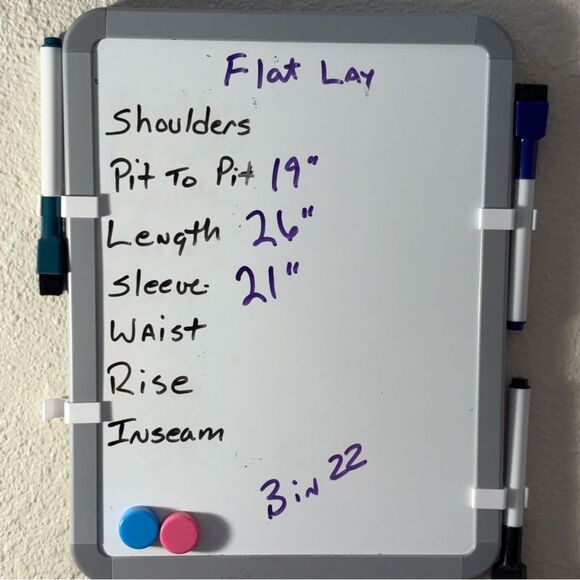 Flat Lay
Shoulders
Pit To Pit 19"
Length 26"
Sleeve 21"
Waist
Rise
Inseam
Bin 22